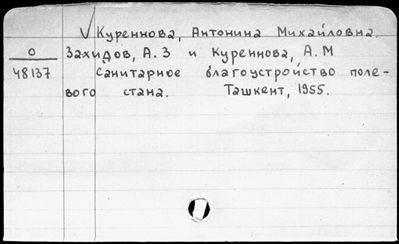 √ Куреннова, Антонина Михайловна.
О
48137
Захидов, А. З и Куреннова, А. М
Санитарное благоустройство поле-
вого стана. Ташкент, 1955.